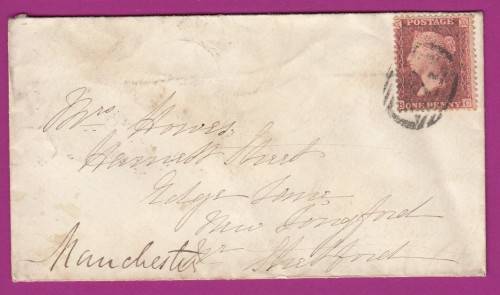 POSTAGE
ONE PENNY
Mrs. Howes
Street
Edge Lane
New
Manchester Nr Stretford